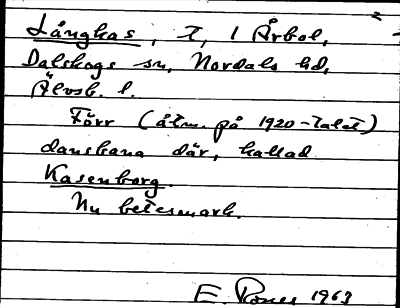 Långkas, T, 1 Årbol,
Dalskogs sn, Nordals hd,
Älvsb. l.
Förr (åtm. på 1920-talet)
dansbana där, kallad
Kasenborg.
Nu betesmark.
E. 1963